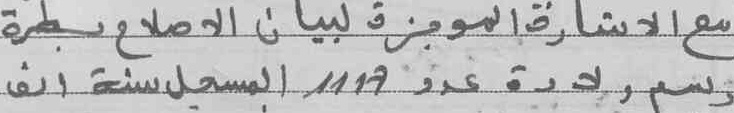 مع الاشارة الموجزة لبيان الاصلاح بطرة
رسم ولادة عدد 1119 المسجل سنة الف